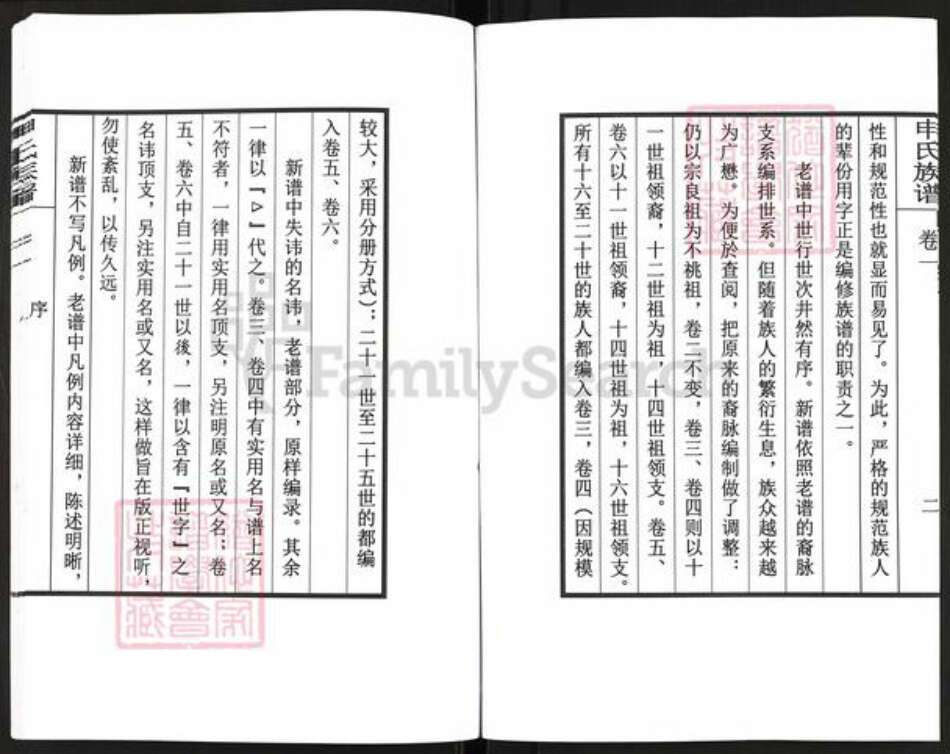 申氏族谱 卷一 二
性和规范性也就显而易见了。为此，严格的规范族人
的辈份用字正是编修族谱的职责之一。
老谱中世行世次井然有序。新谱依照老谱的裔脉
支系编排世系。但随着族人的繁衍生息，族众越来越
为广懋。为便於查阅，把原来的裔脉编制做了调整：
仍以宗良祖为不祧祖，卷二不变，卷三、卷四则以十
一世祖领裔，十二世祖为祖，十四世祖领支。卷五、
卷六以十一世祖领裔，十四世祖为祖，十六世祖领支。
所有十六至二十世的族人都编入卷三，卷四（因规模
较大，采用分册方式）；二十一世至二十五世的都编
入卷五、卷六。
新谱中失讳的名讳，老谱部分，原样编录。其余
一律以『△』代之。卷三、卷四中有实用名与谱上名
不符者，一律用实用名顶支，另注明原名或又名；卷
五、卷六中自二十一世以後，一律以含有『世字』之
名讳顶支，另注实用名或又名，这样做旨在版正视听，
勿使紊乱，以传久远。
新谱不写凡例。老谱中凡例内容详细，陈述明晰，
序
FamilySearch